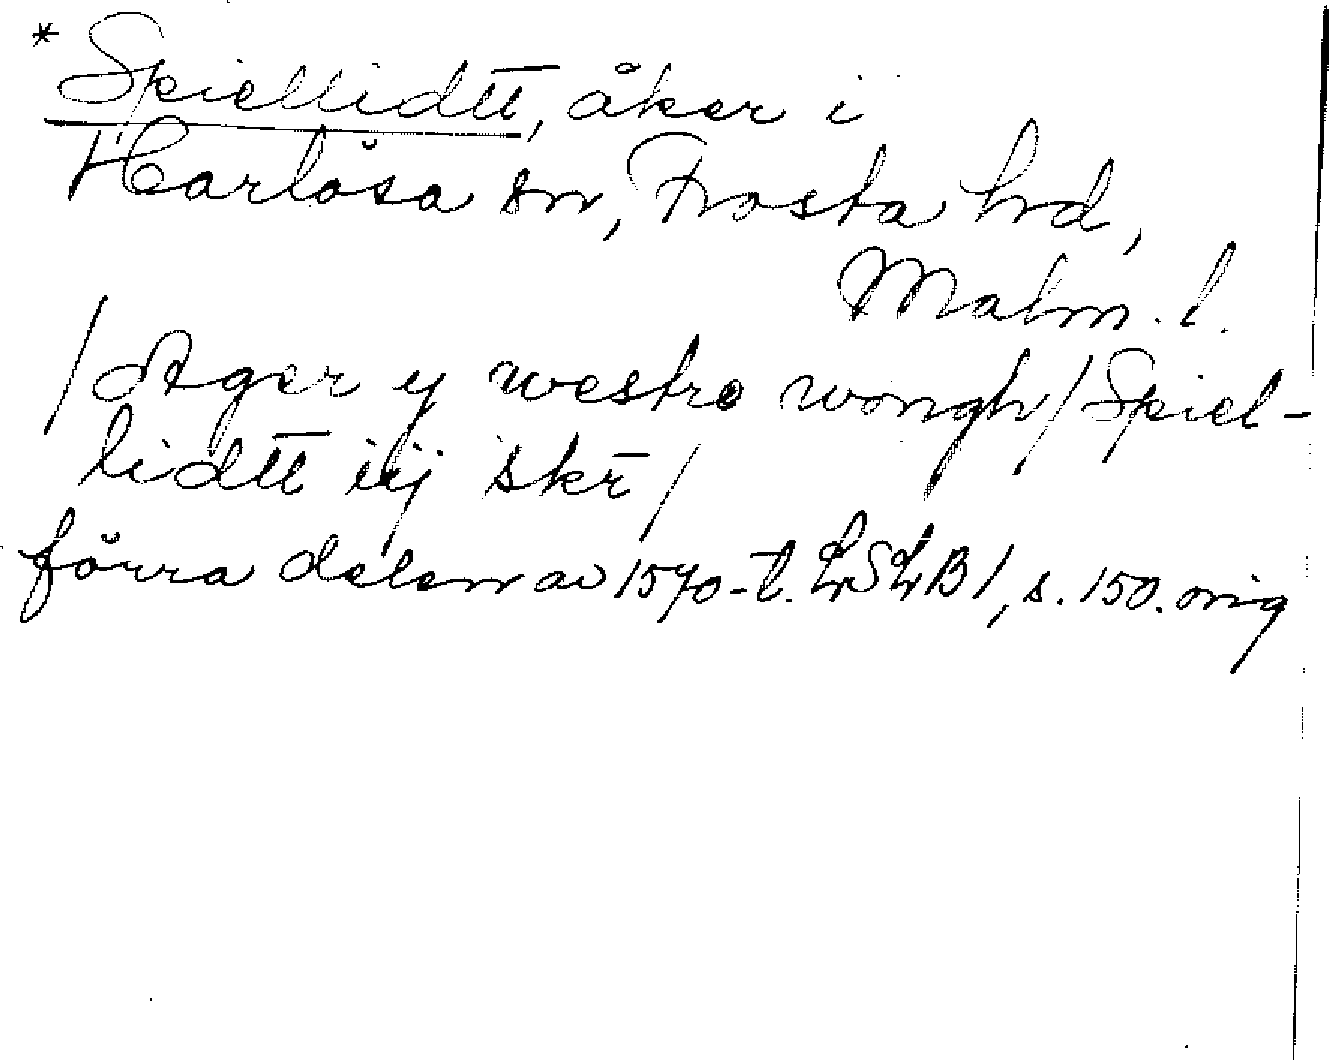 * Spiellidtt, åker i
Harlösa sn, Frosta hd,
Malm. l.
/Ager y westre wongh/Spiel-
lidtt iij skr̄/
förra delen av 1570-t. LSLB1, s. 150. orig